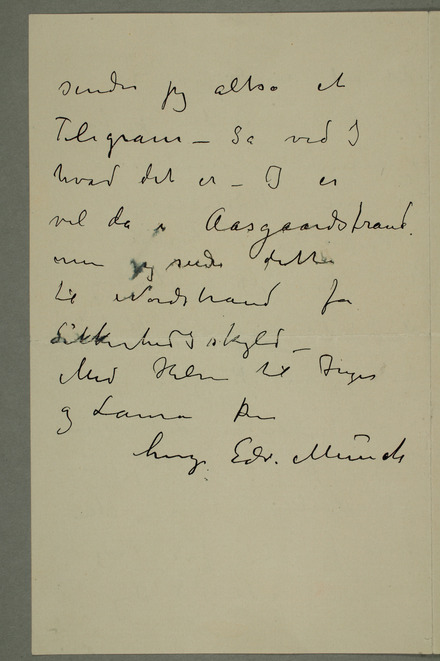 sender jeg altso et
Telegram – Så ved I
hvad det er – I er
vel da i Aasgaardstrand.
men jeg sender dette
til Nordstrand for
Sikkerhedsskyld –
Med Hilsen til Inger
og Laura Din
heng. Edv. Munch